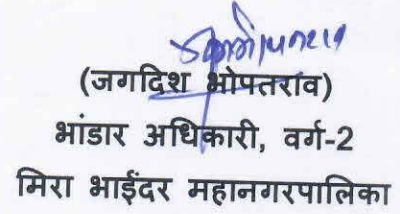 (जगदिश भोपतराव)
भांडार अधिकारी, वर्ग-2
मिरा भाईंदर महानगरपालिका